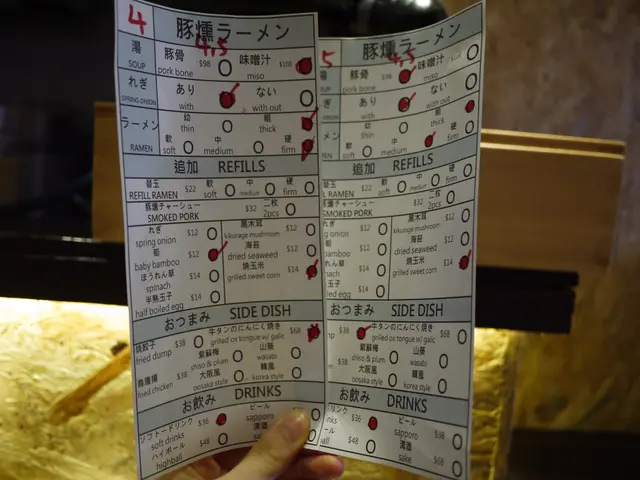 4
豚燻ラーメン
4,5
湯 豚骨 $98 味噌汁 $108
SOUP pork bone miso
れぎ あり ない
SPRING ONION with with out
ラーメン 幼 thin 粗 thick
軟 中 硬
RAMEN soft medium firm
追加 REFILLS
替玉 $22 軟 中 硬
REFILL RAMEN soft medium firm
豚燻チャーシュー $32 二枚
SMOKED PORK 2pcs
れぎ $12 黒木茸 $12
spring onion kikurage mushroom
筍 $12 海苔 $12
baby bamboo dried seaweed
ほうれん草 $14 焼玉米 $14
spinach grilled sweet corn
半熟玉子 $14
half boiled egg
おつまみ SIDE DISH
焼餃子 $38 牛タンのにんにく焼き $68
fried dump grilled ox tongue w/ galic
紫蘇梅 山葵
shiso & plum wasabi
$38 大阪風 韓風
fried chicken oosaka style korea style
お飲み DRINKS
ソフトードリンク $36 ビール
soft drinks sapporo
ハイボール $48 清酒
highball
5
豚燻ラーメン
4,5
湯 豚骨 味噌汁
UP pork bone miso
ぎ あり ない
ONION with with out
メン thin thick
軟 中 硬
MEN soft medium firm
追加 REFILLS
替玉 $22 軟 中 硬
REFILL RAMEN soft medium firm
豚燻チャーシュー $32 二枚
SMOKED PORK 2pcs
れぎ $12 黒木茸 $12
g onion kikurage mushroom
筍 $12 海苔 $12
bamboo dried seaweed
れん草 $14 焼玉米 $14
ch grilled sweet corn
玉子 $14
iled egg
おつまみ SIDE DISH
$38 牛タンのにんにく焼き $68
dump grilled ox tongue w/ galic
紫蘇梅 山葵
shiso & plum wasabi
$38 大阪風 韓風
chicken oosaka style korea style
お飲み DRINKS
リンク $36 ビール $38
nks sapporo
ール $48 清酒 $68
all sake